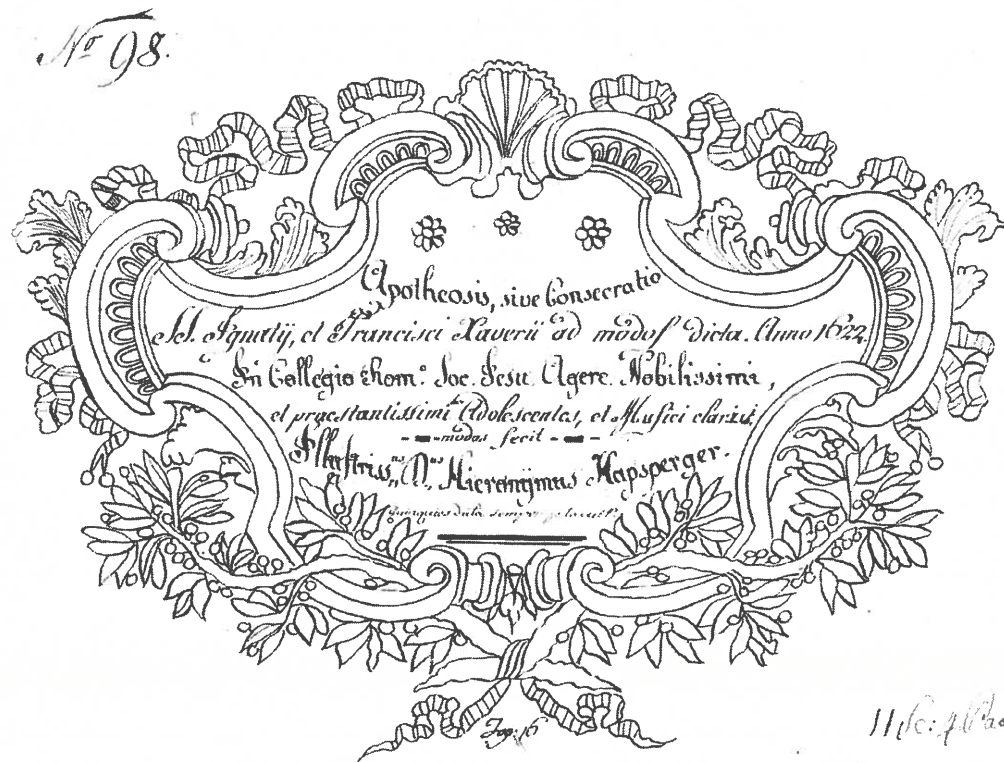 Nº 98.
Apotheosis, sive Consecratio
SS. Ignatij, et Francisci Xaverii ad modos dicta. Anno 1622.
In Collegio Rom.º Soc. Jesu. Agere. Nobilissimi,
et praestantissimi Adolescentes, et Musici clariss.
modos fecit
Illustriss.ᵘˢ D.ⁿᵘˢ Hieronÿmus Kapsperger.
data semper placuit
Fog: 16